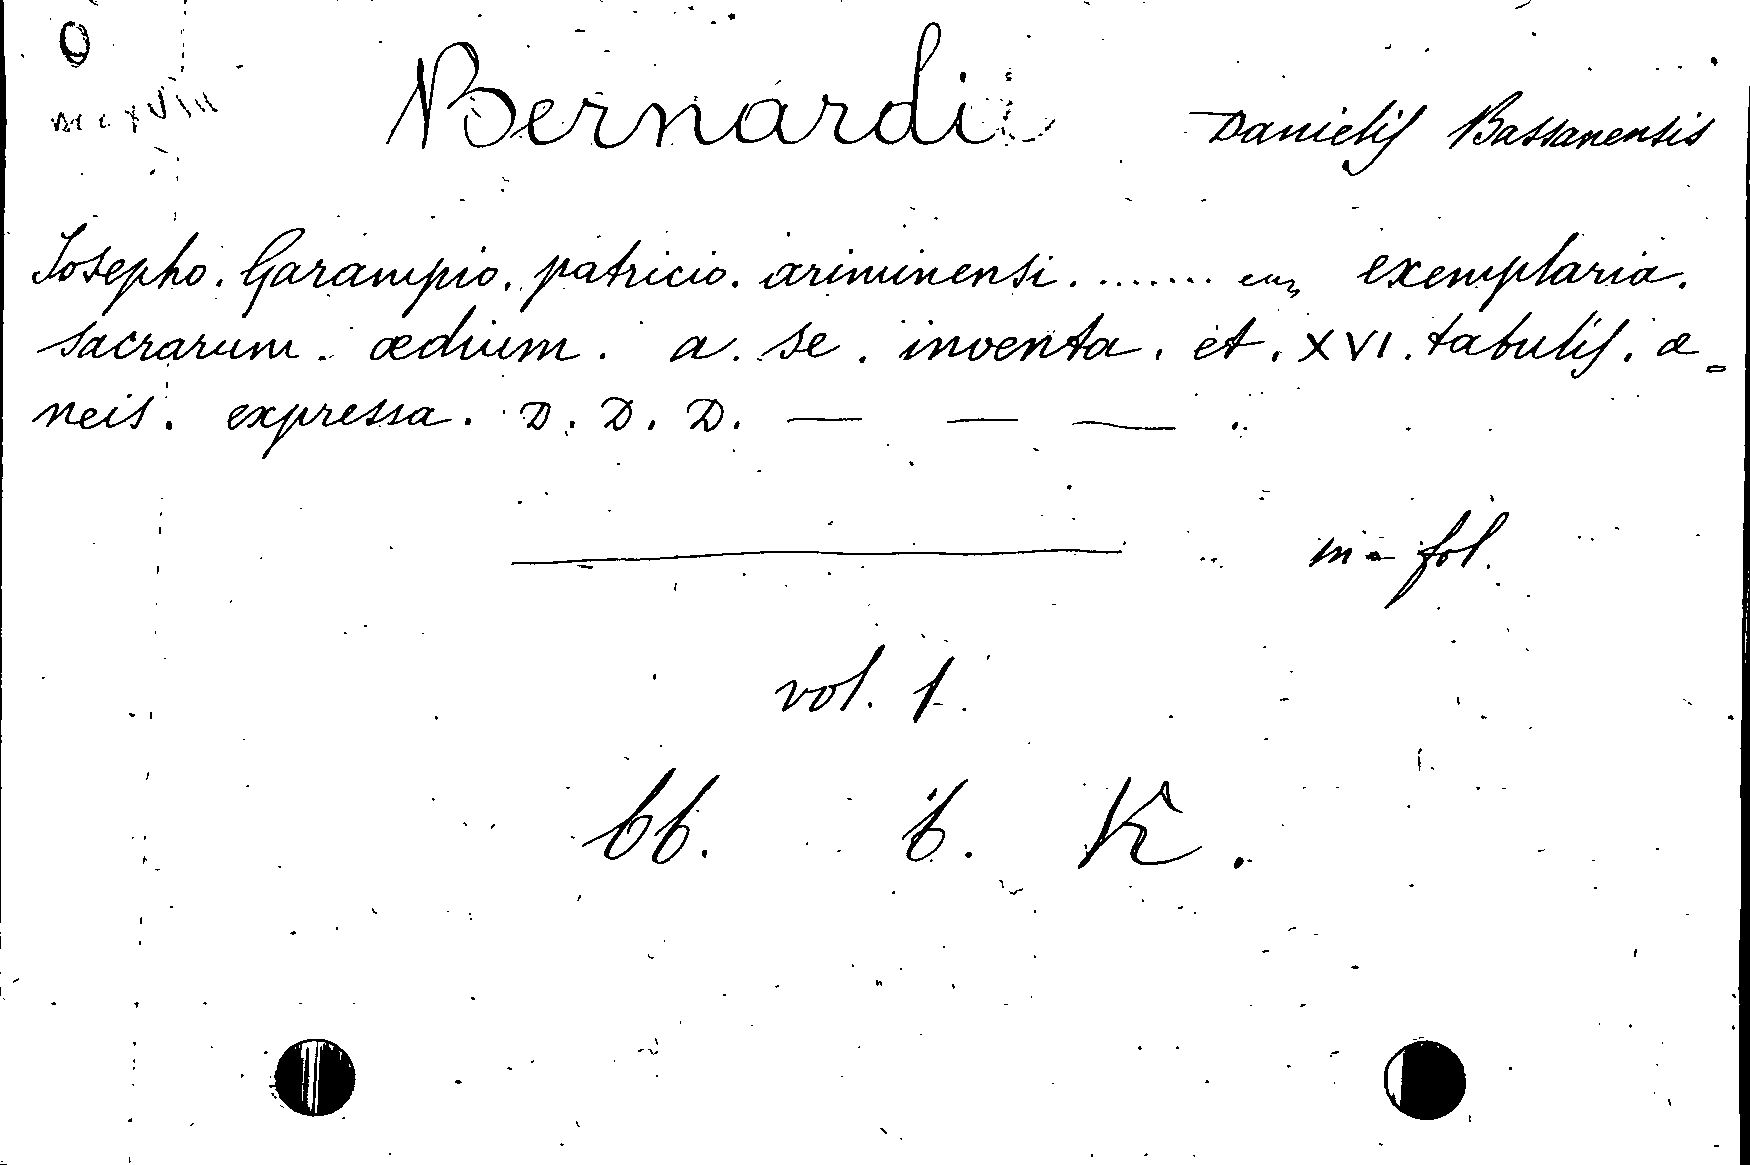 O
Bernardi Danielis Bassanensis
Josepho. Garampio. patricio. ariminensi. ....... exemplaria.
sacrarum. ædium. a. se. inventa. et. XVI. tabulis. æ=
neis. expressa. D. D. D. — — —
in = fol.
vol. 1.
bb. b. K.